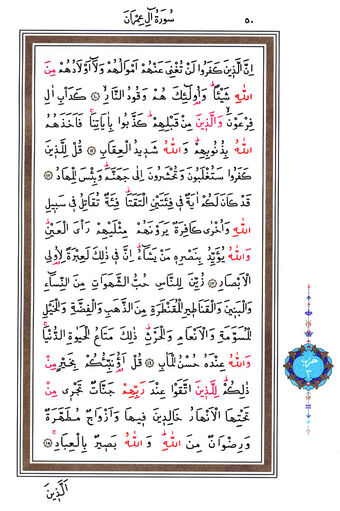 سُورَةُ آلِ عِمْرَانَ
٥٠
اِنَّ الَّذِينَ كَفَرُوا لَنْ تُغْنِىَ عَنْهُمْ اَمْوَالُهُمْ وَلَا اَوْلَادُهُمْ مِنَ
اللهِ شَيْئًا وَاُولٰئِكَ هُمْ وَقُودُ النَّارِ ۝١٠ كَدَاْبِ اٰلِ
فِرْعَوْنَ وَالَّذِينَ مِنْ قَبْلِهِمْ كَذَّبُوا بِاٰيَاتِنَا فَاَخَذَهُمُ
اللهُ بِذُنُوبِهِمْ وَاللهُ شَدِيدُ الْعِقَابِ ۝١١ قُلْ لِلَّذِينَ
كَفَرُوا سَتُغْلَبُونَ وَتُحْشَرُونَ اِلٰى جَهَنَّمَ وَبِئْسَ الْمِهَادُ ۝١٢
قَدْ كَانَ لَكُمْ اٰيَةٌ فِى فِئَتَيْنِ الْتَقَتَا فِئَةٌ تُقَاتِلُ فِى سَبِيلِ
اللهِ وَاُخْرٰى كَافِرَةٌ يَرَوْنَهُمْ مِثْلَيْهِمْ رَاْىَ الْعَيْنِ
وَاللهُ يُؤَيِّدُ بِنَصْرِهِ مَنْ يَشَاءُ اِنَّ فِى ذٰلِكَ لَعِبْرَةً لِاُولِى
الْاَبْصَارِ ۝١٣ زُيِّنَ لِلنَّاسِ حُبُّ الشَّهَوَاتِ مِنَ النِّسَاءِ
وَالْبَنِينَ وَالْقَنَاطِيرِ الْمُقَنْطَرَةِ مِنَ الذَّهَبِ وَالْفِضَّةِ وَالْخَيْلِ
الْمُسَوَّمَةِ وَالْاَنْعَامِ وَالْحَرْثِ ذٰلِكَ مَتَاعُ الْحَيٰوةِ الدُّنْيَا
وَاللهُ عِنْدَهُ حُسْنُ الْمَاٰبِ ۝١٤ قُلْ اَؤُنَبِّئُكُمْ بِخَيْرٍ مِنْ
ذٰلِكُمْ لِلَّذِينَ اتَّقَوْا عِنْدَ رَبِّهِمْ جَنَّاتٌ تَجْرِى مِنْ
تَحْتِهَا الْاَنْهَارُ خَالِدِينَ فِيهَا وَاَزْوَاجٌ مُطَهَّرَةٌ
وَرِضْوَانٌ مِنَ اللهِ وَاللهُ بَصِيرٌ بِالْعِبَادِ ۝١٥
اَلَّذِينَ